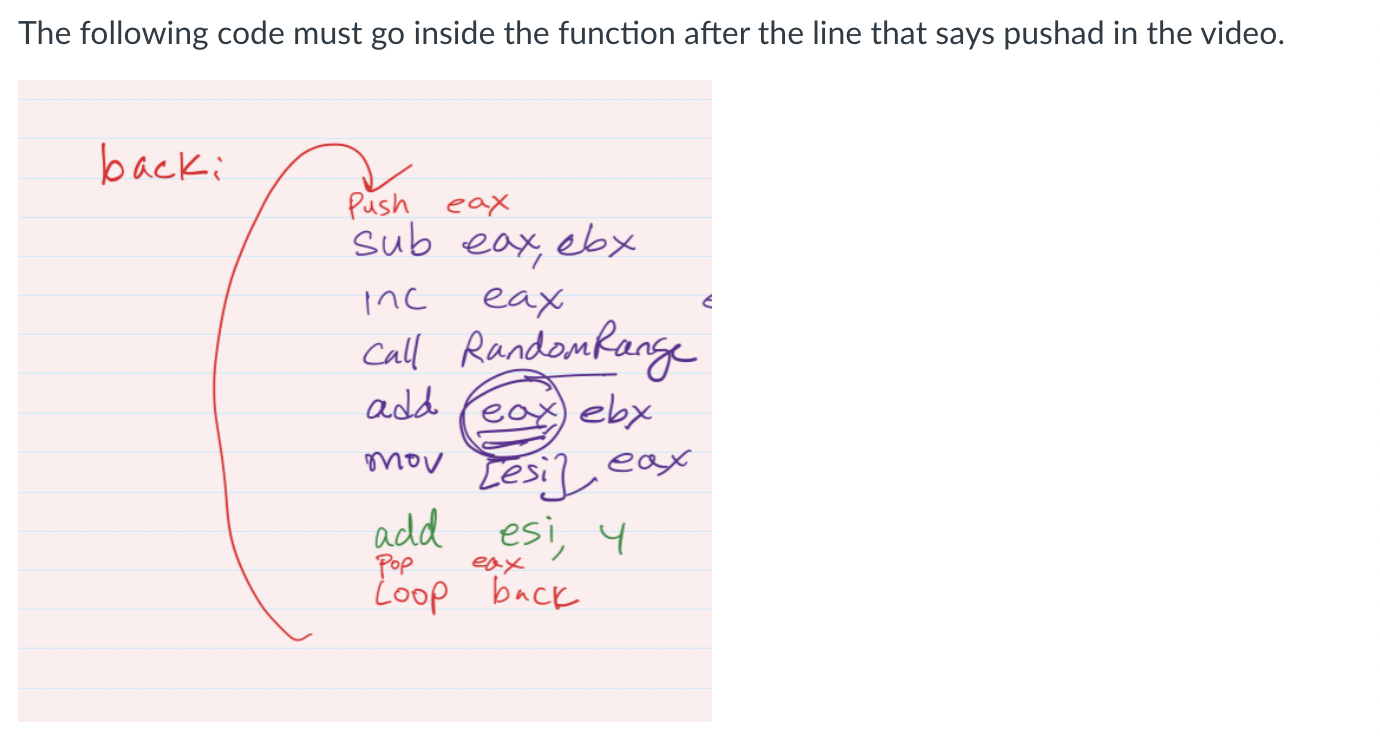 The following code must go inside the function after the line that says pushad in the video.
back:
Push eax
sub eax, ebx
inc eax
call RandomRange
add eax, ebx
mov [esi], eax
add esi, 4
Pop eax
Loop back